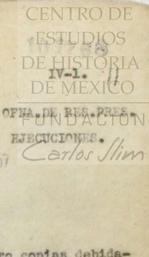 CENTRO DE
ESTUDIOS
DE HISTORIA
DE MÉXICO
IV-1.
OFNA.DE RES.PRES.
EJECUCIONES.
FUNDACIÓN
Carlos Slim
copias debida-